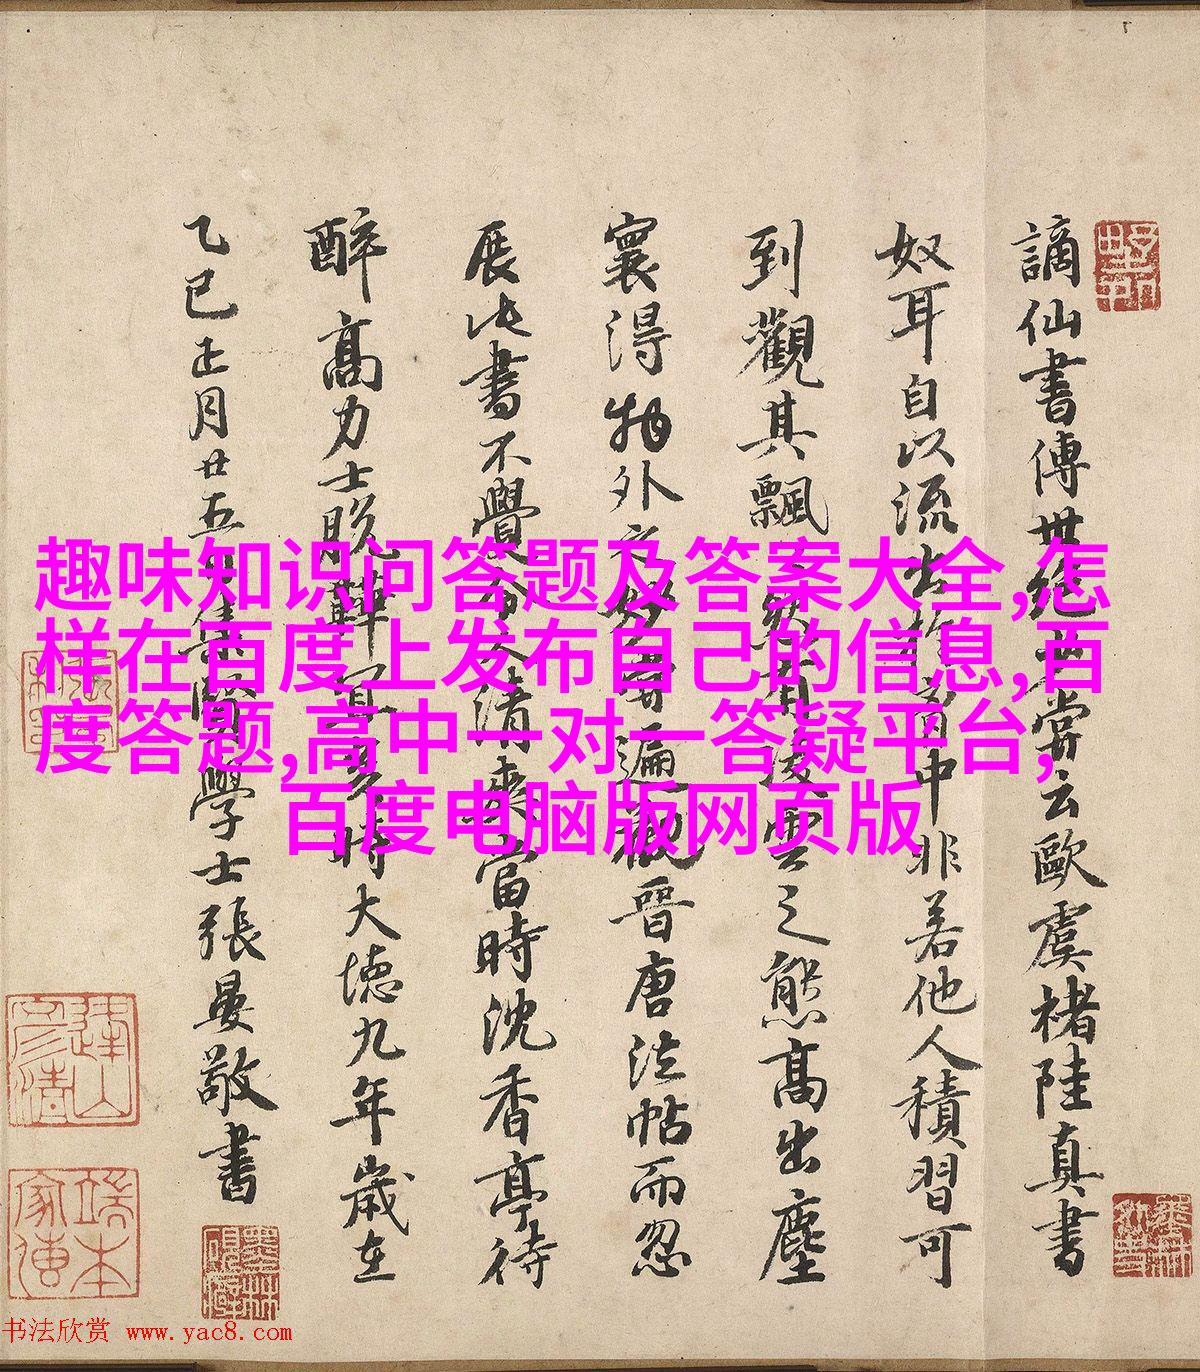 謫仙書傳世絕少嘗云歐虞褚陸真書
奴耳自以流出於胷中非若他人積習可
到觀其飄飄然有凌雲之態高出塵
寰得物外之妙嘗遍觀晉唐法帖而忽
展此書不覺令人清爽當時沈香亭待
醉高力士脫鞾宜矣時大德九年歲在
乙巳正月廿五日集賢學士張晏敬書
趣味知识问答题及答案大全,怎
样在百度上发布自己的信息,百
度答题,高中一对一答疑平台,
百度电脑版网页版
书法欣赏 www.yac8.com